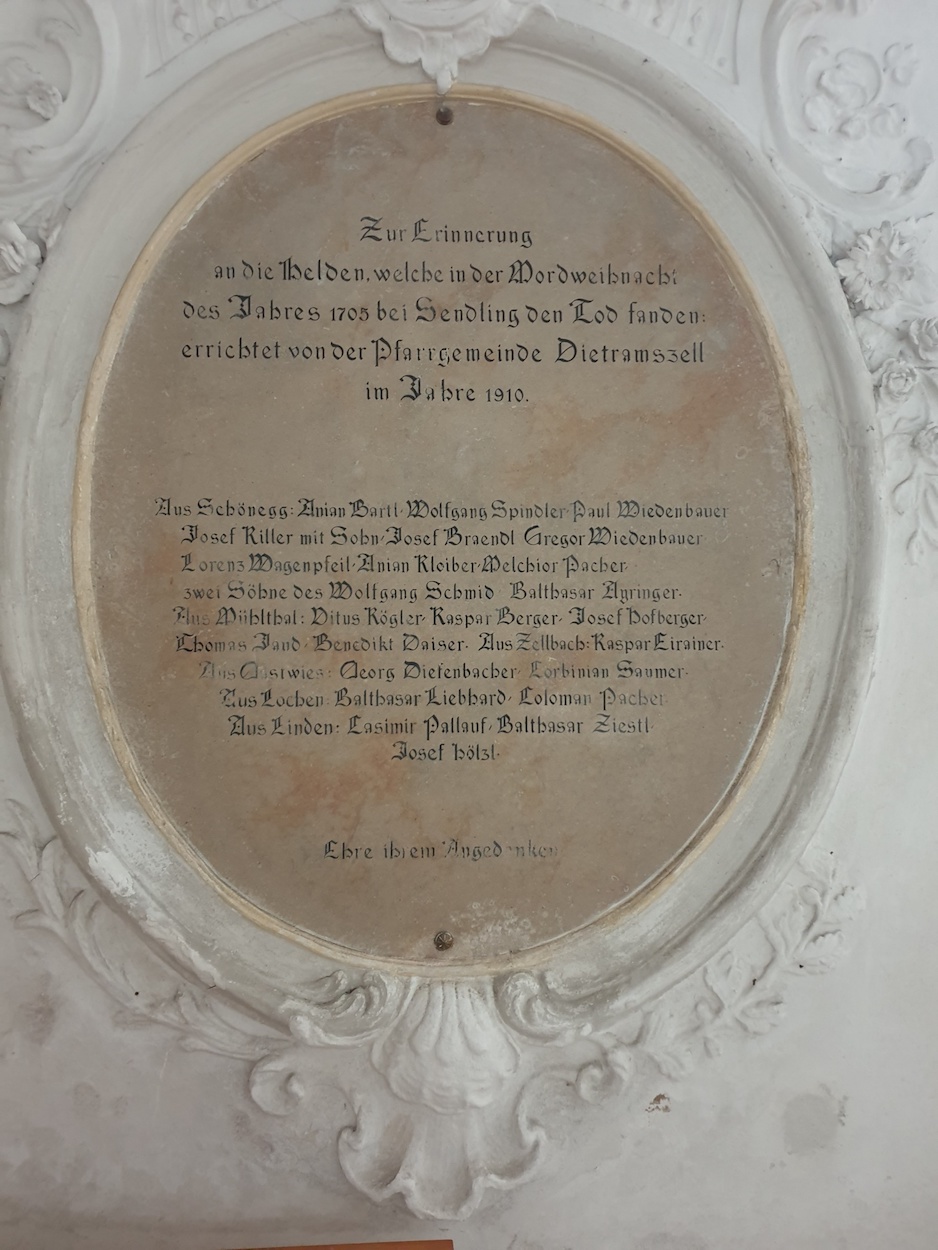 Zur Erinnerung
an die Helden, welche in der Mordweihnacht
des Jahres 1705 bei Sendling den Tod fanden:
errichtet von der Pfarrgemeinde Dietramszell
im Jahre 1910.
Aus Schönegg: Anian Bartl · Wolfgang Spindler · Paul Wiedenbauer
Josef Killer mit Sohn · Josef Braendl Gregor Wiedenbauer
Lorenz Wagenpfeil · Anian Kloiber · Melchior Pacher
zwei Söhne des Wolfgang Schmid · Balthasar Ayringer ·
Aus Mühlthal: Vitus Kögler · Kaspar Berger · Josef Hofberger ·
Thomas Jand · Benedikt Daiser · Aus Zellbach: Kaspar Eirainer ·
Aus Georg Diefenbacher · Corbinian Saumer ·
Aus Lochen: Balthasar Liebhard · Coloman Pacher
Aus Linden: Casimir Pallauf · Balthasar Ziestl ·
Josef Hölzl ·
Ehre ihrem Angedenken